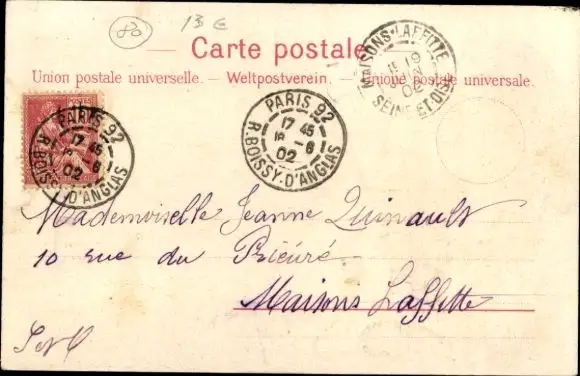 80
13 €
Carte postale
Union postale universelle. — Weltpostverein. — Unione postale universale.
PARIS. 92
17 45
8 - 6
02
R. BOISSY-D'ANGLAS
PARIS. 92
17 45
8 - 6
02
R. BOISSY-D'ANGLAS
MAISONS-LAFFITTE
19
02
SEINE-ET-OISE
Mademoiselle Jeanne Quinault
10 rue du Prieuré
Maisons Laffitte